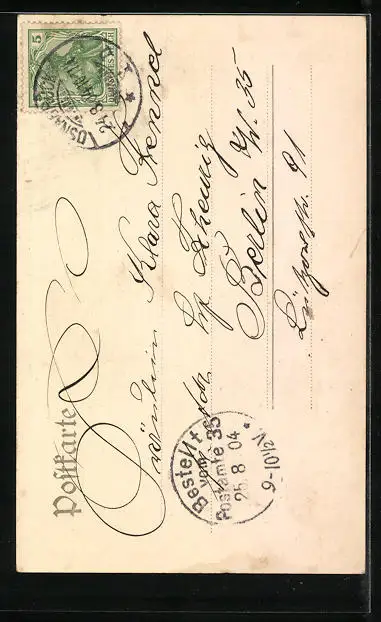 Postkarte
5
DEUTSCHES REICH
24.8.04
Fräulein Klara Henkel
Berlin W. 35
Lützowstr. 91
Bestellt
vom
Postamte 35
25. 8. 04
9-10½V.